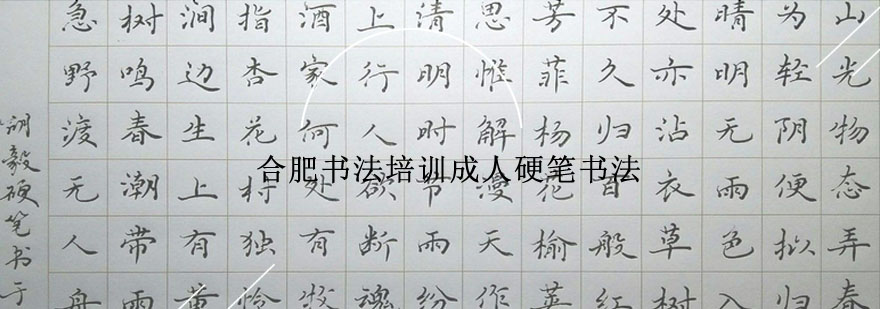 山光物态弄春
为轻阴便拟归
晴明无雨色入
处亦沾衣草树
不久归百般红
芳菲杨花榆荚
思惟解漫天作
清明时节雨纷
上行人欲断魂
酒家何处有牧
指杏花村独怜
涧边生上有黄
树鸣春潮带雨
急野渡无人舟
胡毅硬笔书于
合肥书法培训成人硬笔书法